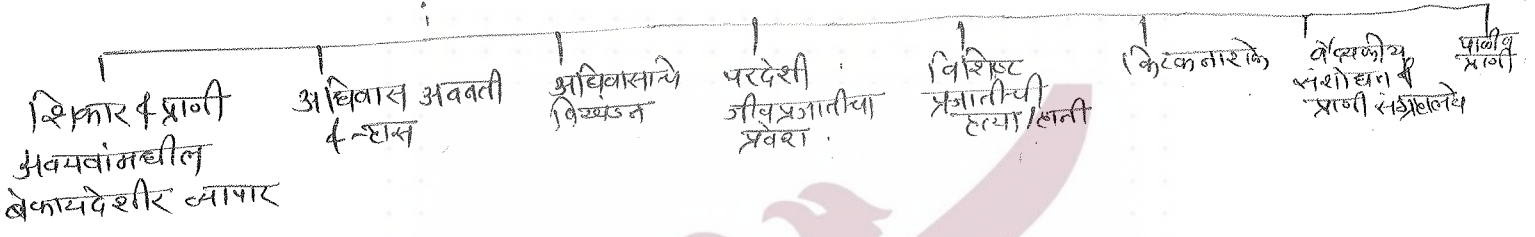 शिकार & प्राणी
अवयवांमधील
बेकायदेशीर व्यापार
अधिवास अवनती
& ऱ्हास
अधिवासाचे
विखंडन
परदेशी
जीवप्रजातीचा
प्रवेश
विशिष्ट
प्रजातीची
हत्या/हानी
किटकनाशके
वैद्यकीय
संशोधन &
प्राणी संग्रहालये
पाळीव
प्राणी